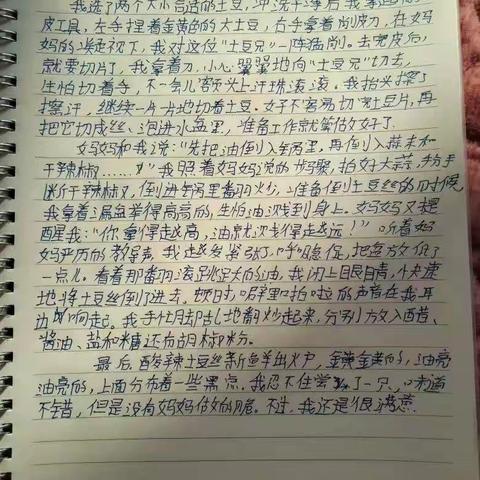 我选了两个大小合适的土豆，冲洗干净后我拿起削
皮工具，左手捏着金黄色的大土豆，右手拿着削皮刀，在妈
妈的注视下，我对这位“土豆兄”一阵猛削。去完皮后，
就要切片了，我拿着刀，小心翼翼地向“土豆兄”切去，
生怕切着手，不一会儿额头上汗珠滚滚。我抬头擦了
擦汗，继续一片一片地切着土豆。好不容易切完土豆片，再
把它切成丝，泡进水盆里，准备工作就算做好了。
妈妈和我说：“先把油倒入锅里，再倒入蒜末和
干辣椒……”我照着妈妈说的步骤，拍好大蒜，
干辣椒，倒进锅里翻炒，准备倒土豆丝的时候，
我拿着盆举得高高的，生怕油溅到身上。妈妈又提
醒我：“你拿得越高，油就溅得越远！”听着妈
妈严厉的教导声，我越发紧张，呼吸急促，把盆放低了
一点儿。看着那翻滚跳跃的油，我闭上眼睛，快速
地将土豆丝倒了进去。顿时，噼里啪啦的声音在我耳
边响起。我手忙脚乱地翻炒起来，分别放入醋、
酱油、盐和糖还有胡椒粉。
最后，酸辣土豆丝新鲜出炉，金黄金黄的，油亮
油亮的，上面分布着一些黑点。我忍不住尝了一口，味道
不错，但是没有妈妈做的脆。不过，我还是很满意。